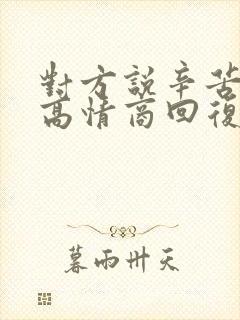 對方說辛苦
高情商回復
暮雨卅天